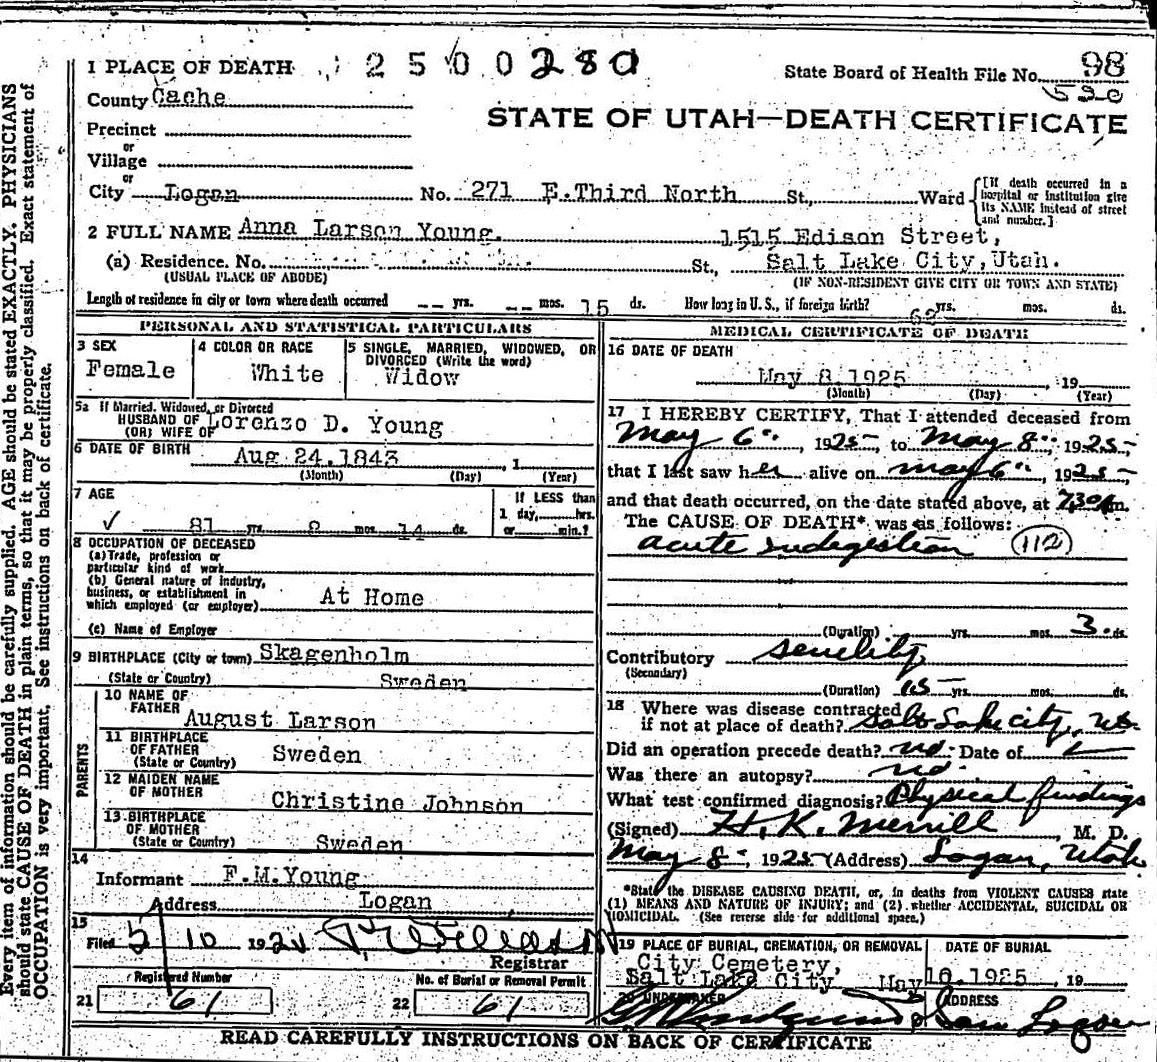 1 PLACE OF DEATH 2500280
State Board of Health File No. 98
County Cache
530
STATE OF UTAH—DEATH CERTIFICATE
Precinct
or
Village
or
City Logan No. 271 E.Third North St., Ward
[If death occurred in a hospital or institution give its NAME instead of street and number.]
2 FULL NAME Anna Larson Young. 1515 Edison Street,
(a) Residence. No. St., Salt Lake City,Utah.
(USUAL PLACE OF ABODE) (IF NON-RESIDENT GIVE CITY OR TOWN AND STATE)
Length of residence in city or town where death occurred -- yrs. -- mos. 15 ds. How long in U.S., if foreign birth? 62 yrs. mos. ds.
PERSONAL AND STATISTICAL PARTICULARS
3 SEX
Female
4 COLOR OR RACE
White
5 SINGLE, MARRIED, WIDOWED, OR
DIVORCED (Write the word)
Widow
5a If Married, Widowed, or Divorced
HUSBAND OF
(OR) WIFE OF Lorenzo D. Young
6 DATE OF BIRTH Aug 24.1843 , 1
(Month) (Day) (Year)
7 AGE
81 yrs. 8 mos. 14 ds.
If LESS than
1 day, hrs.
or min.?
8 OCCUPATION OF DECEASED
(a) Trade, profession or
particular kind of work
(b) General nature of industry,
business, or establishment in
which employed (or employer) At Home
(c) Name of Employer
9 BIRTHPLACE (City or town) Skagenholm
(State or Country) Sweden
PARENTS
10 NAME OF
FATHER
August Larson
11 BIRTHPLACE
OF FATHER
(State or Country) Sweden
12 MAIDEN NAME
OF MOTHER
Christine Johnson
13 BIRTHPLACE
OF MOTHER
(State or Country) Sweden
14
Informant F.M.Young
Address Logan
15
Filed 5/10 192
Registrar
Registered Number
21 61
No. of Burial or Removal Permit
22 61
MEDICAL CERTIFICATE OF DEATH
16 DATE OF DEATH
May 8.1925 , 19
(Month) (Day) (Year)
17 I HEREBY CERTIFY, That I attended deceased from
May 6", 1925, to May 8", 1925,
that I last saw her alive on May 6", 1925,
and that death occurred, on the date stated above, at 7.30 m.
The CAUSE OF DEATH* was as follows:
acute indegestion (112)
(Duration) yrs. mos. 3 ds.
Contributory senelity
(Secondary)
(Duration) yrs. mos. ds.
18 Where was disease contracted
if not at place of death? Salt Lake city, Ut.
Did an operation precede death? no Date of
Was there an autopsy? no
What test confirmed diagnosis? Physical findings
(Signed) H. K. Merrill, M. D.
May 8, 1925 (Address) Logan, Utah
*State the DISEASE CAUSING DEATH, or, in deaths from VIOLENT CAUSES state
(1) MEANS AND NATURE OF INJURY; and (2) whether ACCIDENTAL, SUICIDAL OR
HOMICIDAL. (See reverse side for additional space.)
19 PLACE OF BURIAL, CREMATION, OR REMOVAL
City Cemetery,
Salt Lake City,
DATE OF BURIAL
May 10.1925 , 19
20 UNDERTAKER
ADDRESS
Logan
READ CAREFULLY INSTRUCTIONS ON BACK OF CERTIFICATE
Every item of information should be carefully supplied. AGE should be stated EXACTLY. PHYSICIANS
should state CAUSE OF DEATH in plain terms, so that it may be properly classified. Exact statement of
OCCUPATION is very important. See instructions on back of certificate.